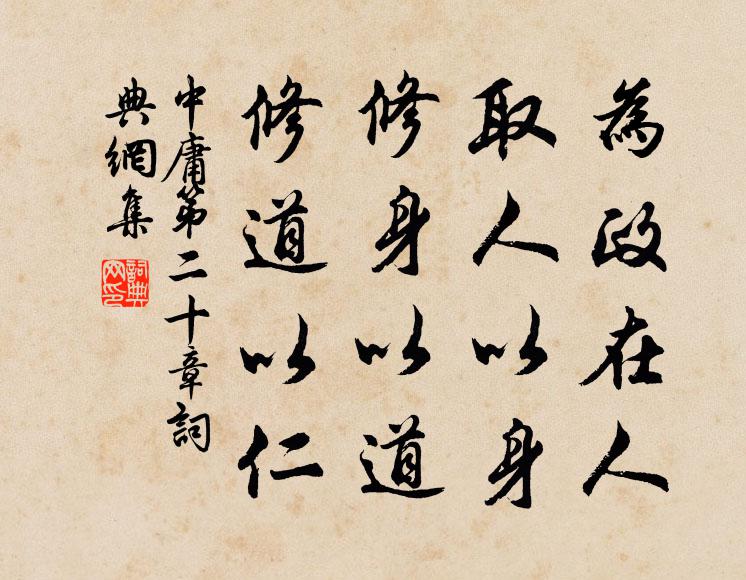 為政在人
取人以身
修身以道
修道以仁
中庸第二十章詞
典網集
詞典網印